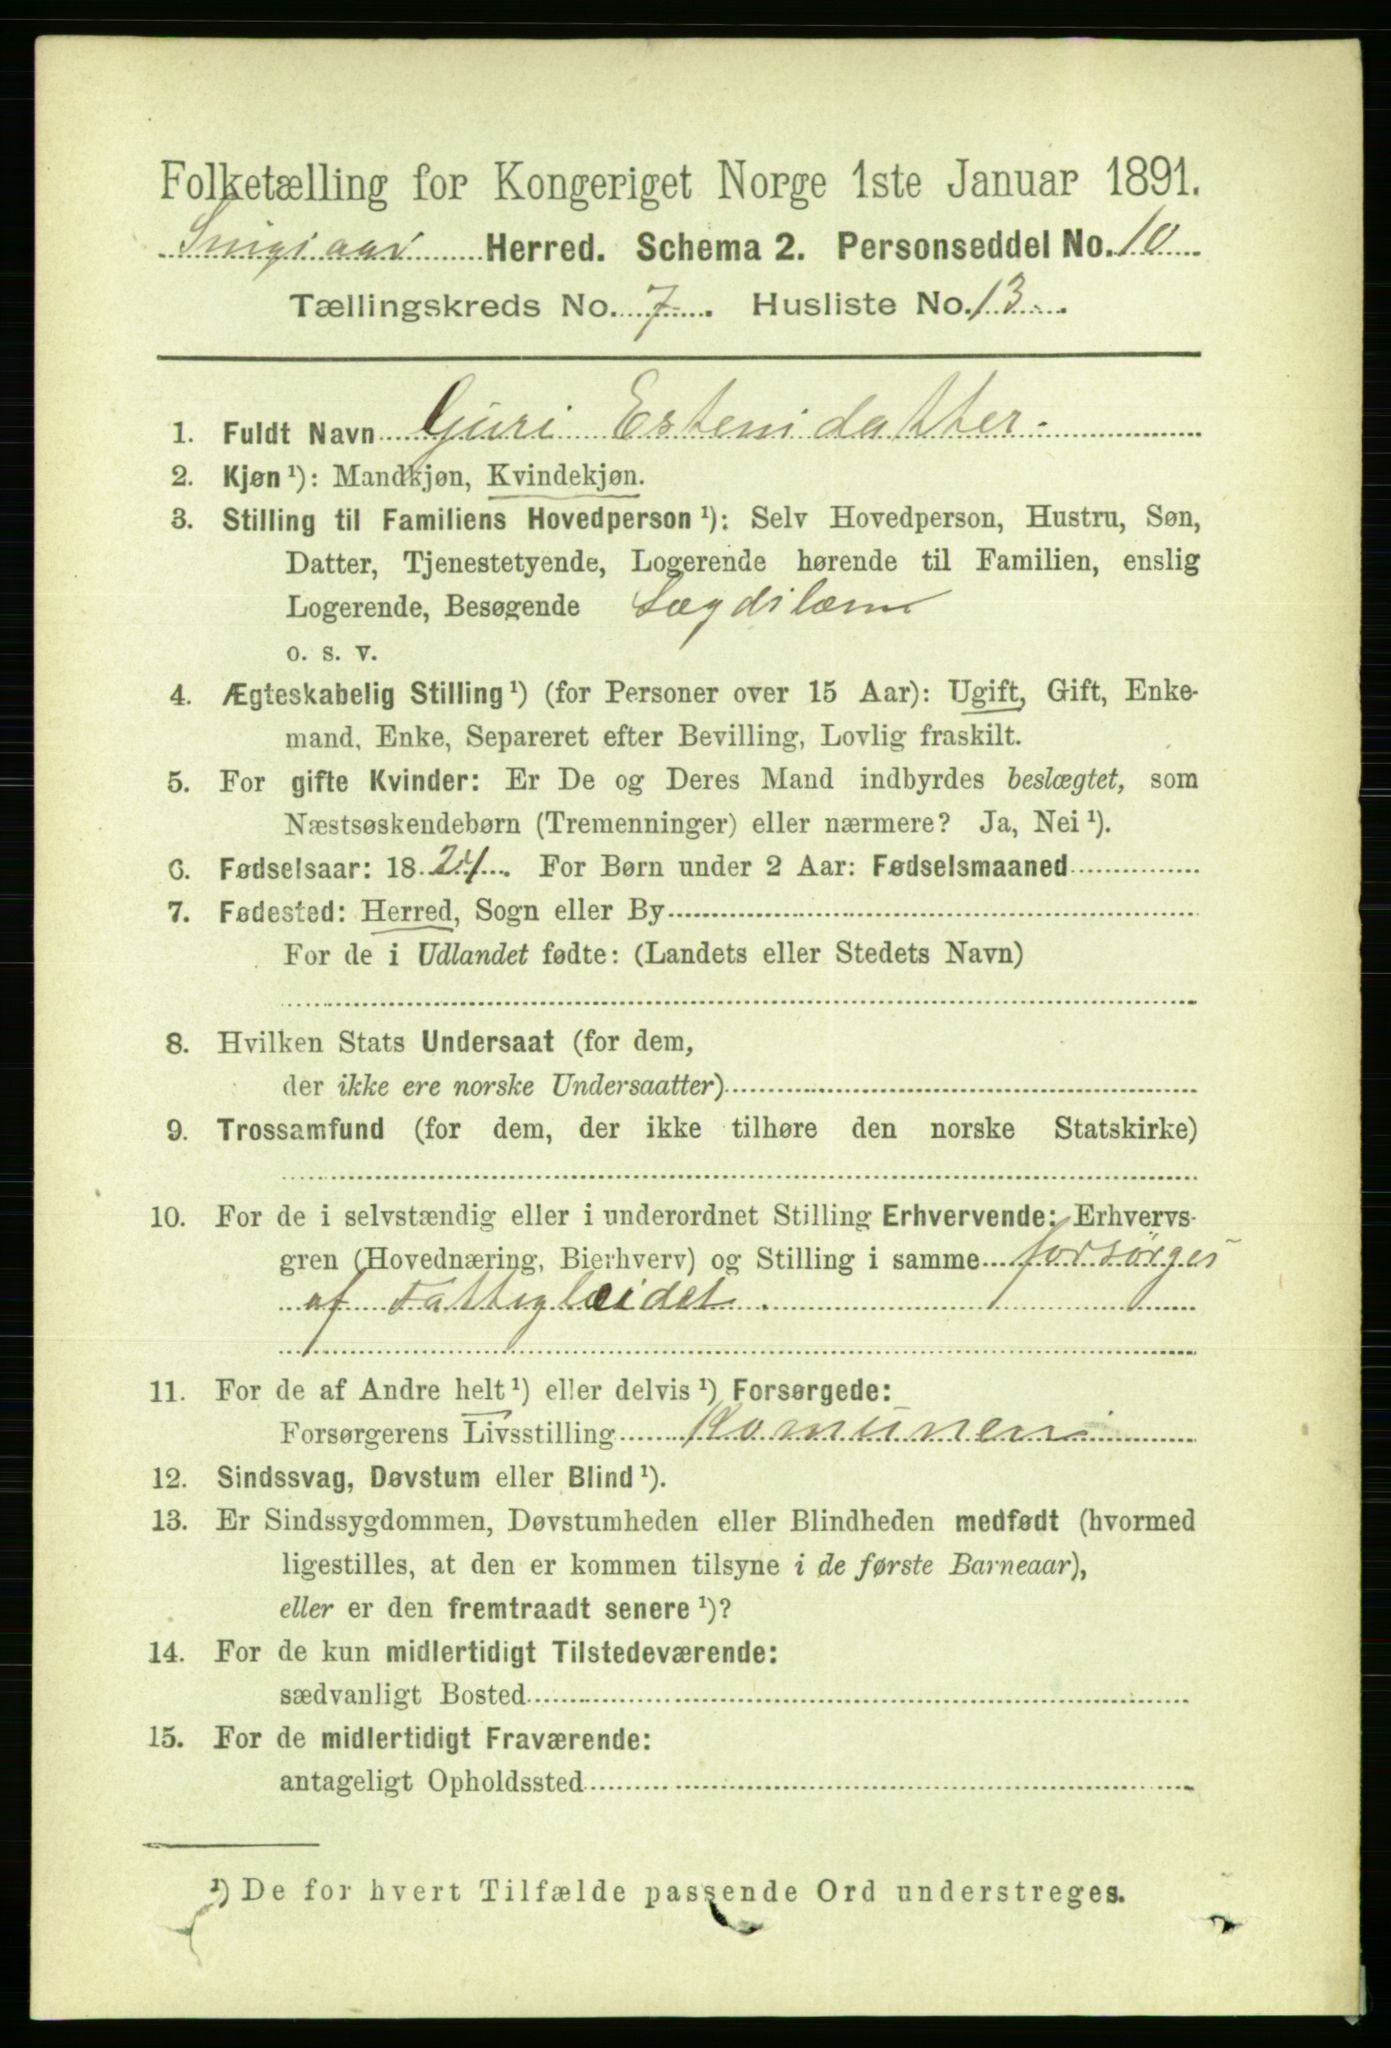 Folketælling for Kongeriget Norge 1ste Januar 1891.
Herred. Schema 2. Personseddel No. 10
Tællingskreds No. 7. Husliste No. 13
1. Fuldt Navn Guri Estensdatter.
2. Kjøn ¹): Mandkjøn, Kvindekjøn.
3. Stilling til Familiens Hovedperson ¹): Selv Hovedperson, Hustru, Søn,
Datter, Tjenestetyende, Logerende hørende til Familien, enslig
Logerende, Besøgende Lægdslem
o. s. v.
4. Ægteskabelig Stilling ¹) (for Personer over 15 Aar): Ugift, Gift, Enke-
mand, Enke, Separeret efter Bevilling, Lovlig fraskilt.
5. For gifte Kvinder: Er De og Deres Mand indbyrdes beslægtet, som
Næstsøskendebørn (Tremenninger) eller nærmere? Ja, Nei ¹).
6. Fødselsaar: 1824. For Børn under 2 Aar: Fødselsmaaned
7. Fødested: Herred, Sogn eller By
For de i Udlandet fødte: (Landets eller Stedets Navn)
8. Hvilken Stats Undersaat (for dem,
der ikke ere norske Undersaatter)
9. Trossamfund (for dem, der ikke tilhøre den norske Statskirke)
10. For de i selvstændig eller i underordnet Stilling Erhvervende: Erhvervs-
gren (Hovednæring, Bierhverv) og Stilling i samme forsørges
af
11. For de af Andre helt ¹) eller delvis ¹) Forsørgede:
Forsørgerens Livsstilling Komunen
12. Sindssvag, Døvstum eller Blind ¹).
13. Er Sindssygdommen, Døvstumheden eller Blindheden medfødt (hvormed
ligestilles, at den er kommen tilsyne i de første Barneaar),
eller er den fremtraadt senere ¹)?
14. For de kun midlertidigt Tilstedeværende:
sædvanligt Bosted
15. For de midlertidigt Fraværende:
antageligt Opholdssted
¹) De for hvert Tilfælde passende Ord understreges.